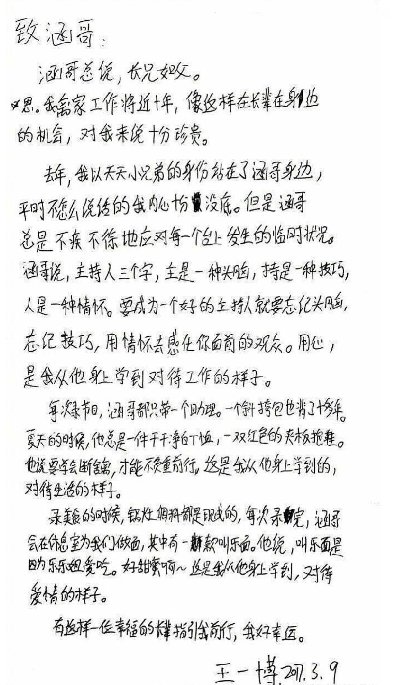 致涵哥：
涵哥总说，长兄如父。
恩。我离家工作将近十年，像这样在长辈在身边
的机会，对我来说十分珍贵。
去年，我以天天小兄弟的身份站在了涵哥身边，
平时不怎么说话的我内心十分没底。但是涵哥
总是不疾不徐地应对每一个台上发生的临时状况。
涵哥说，主持人三个字，主是一种头脑，持是一种技巧，
人是一种情怀。要成为一个好的主持人就要忘记头脑，
忘记技巧，用情怀去感化你面前的观众。用心，
是我从他身上学到对待工作的样子。
每次录节目，涵哥都只带一个助理。一个斜挎包也背了十多年。
夏天的时候，他总是一件干干净的T恤，一双红色的夹板拖鞋。
他说要学会断舍离，才能不负重前行。这是我从他身上学到的，
对待生活的样子。
录美食的时候，锅灶调料都是现成的，每次录完，涵哥
会在休息室为我们做面，其中有一款叫乐面。他说，叫乐面是
因为乐乐姐爱吃。好甜蜜啊～这是我从他身上学到，对待
爱情的样子。
有这样一位幸福的长辈指引我前行，我好幸运。
王一博.2017.3.9